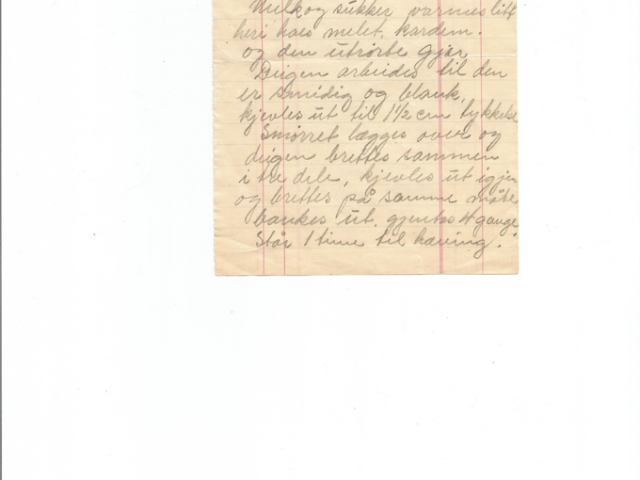 Melk og sukker varmes litt
heri haes melet, kardem.
og den utrørte gjær
Deigen arbeides til den
er smidig og blank,
kjevles ut til 1½ cm tykkelse
Smørret lægges over og
deigen brettes sammen
i tre dele, kjevles ut igjen
og brettes på samme måte
bankes ut, gjentas 4 gange
Står 1 time til hævning.